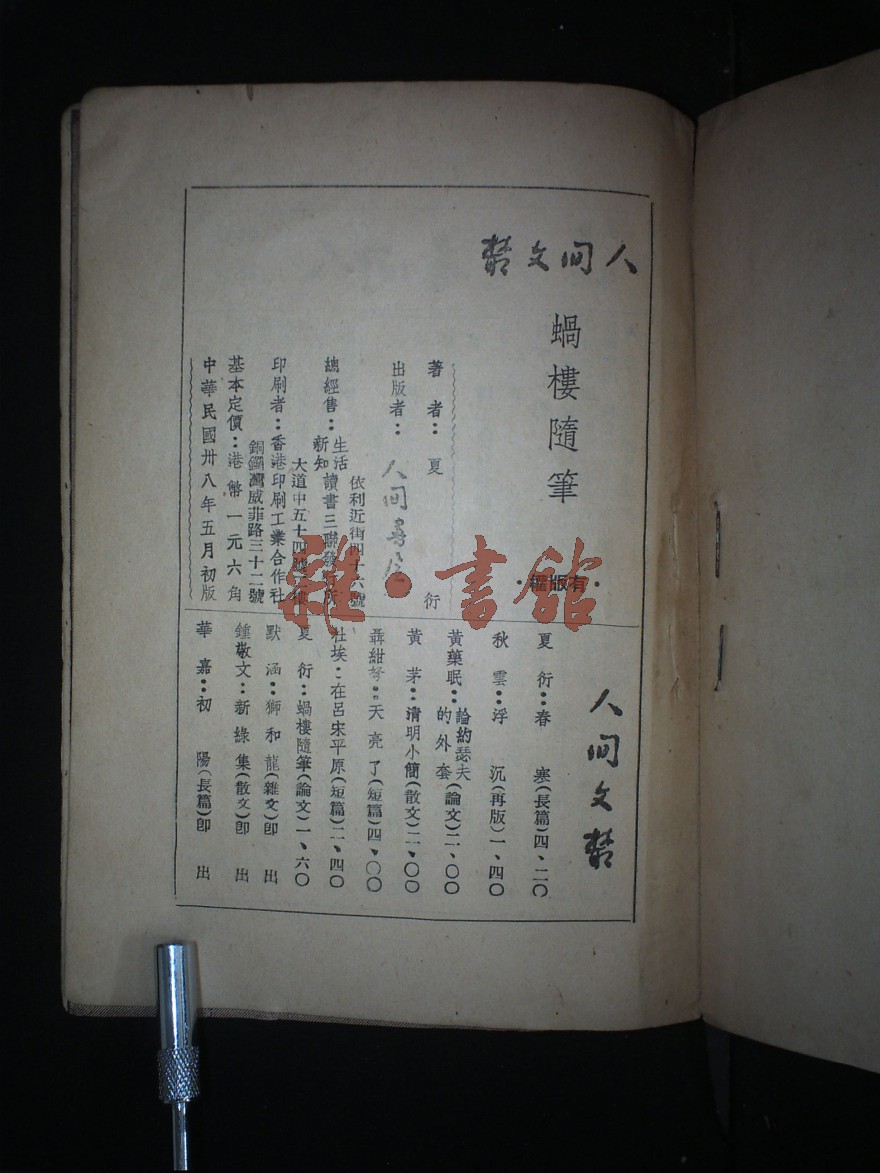 人间文丛
蝸樓隨筆
·有版權·
著者：夏衍
出版者：人间書屋
總經售：生活 新知 讀書三聯發行所
依利近街四十六號
大道中五十四號二樓
印刷者：香港印刷工業合作社
銅鑼灣威菲路三十二號
基本定價：港幣一元六角
中華民國卅八年五月初版
人间文丛
夏衍：春寒(長篇)四、二〇
秋雲：浮沉(再版)一、四〇
黃藥眠：論約瑟夫的外套(論文)二、〇〇
黃茅：清明小簡(散文)二、〇〇
聶紺弩：天亮了(短篇)四、〇〇
杜埃：在呂宋平原(短篇)二、四〇
夏衍：蝸樓隨筆(論文)一、六〇
默涵：獅和龍(雜文)卽出
鍾敬文：新綠集(散文)卽出
華嘉：初陽(長篇)卽出
雜·書館